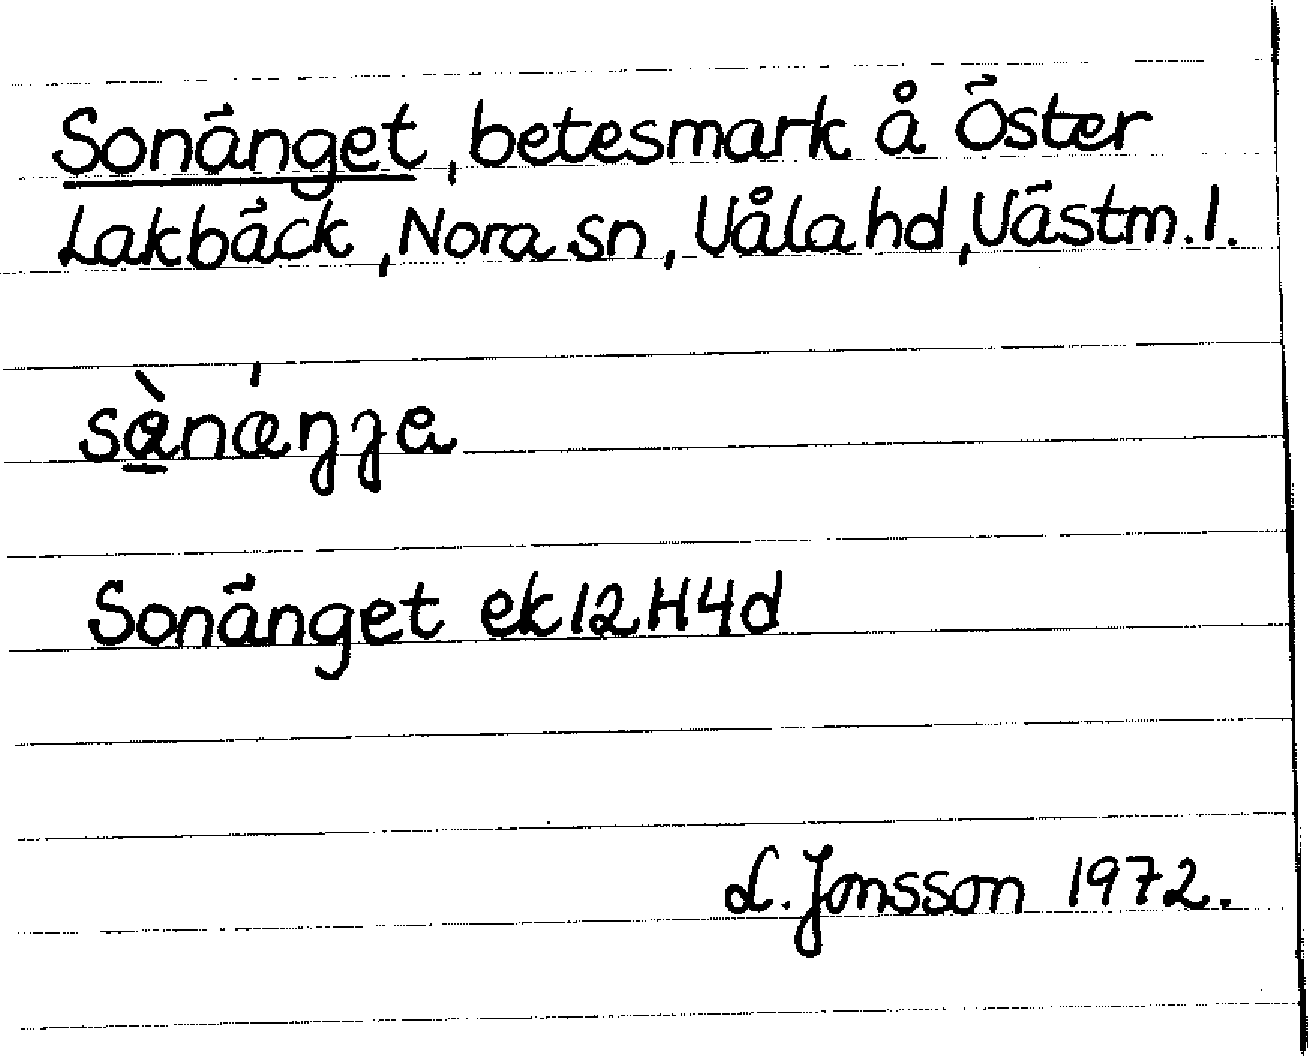 Sonänget, betesmark å Öster
Lakbäck, Nora sn, Våla hd, Västm. l.
sànǽŋɡe
Sonänget ek 12H4d
L. Jonsson 1972.